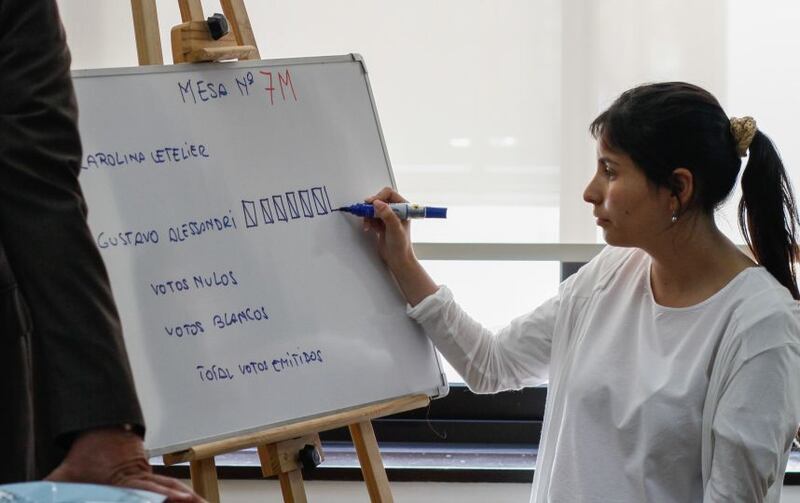 MESA Nº 7M
CAROLINA LETELIER
GUSTAVO ALESSANDRI
VOTOS NULOS
VOTOS BLANCOS
TOTAL VOTOS EMITIDOS